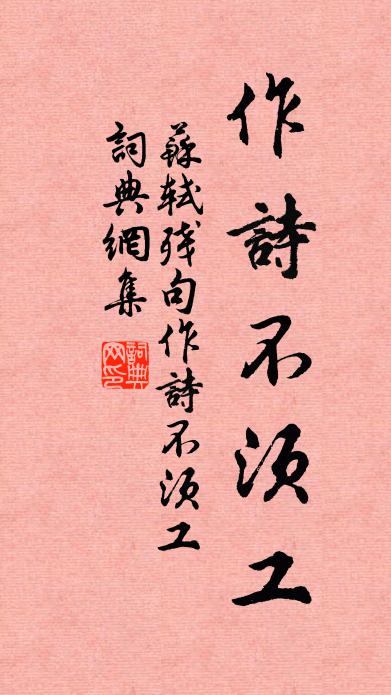 作詩不須工
蘇軾殘句作詩不須工
詞典網集
詞典
网印